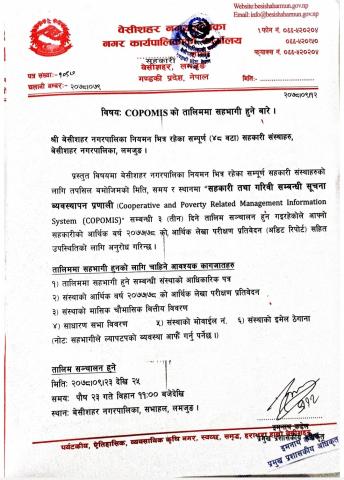 Website:www.besishaharmun.gov.np
Email: info@besishaharmun.gov.np
बेसीशहर नगरपालिका
नगर कार्यपालिकाको कार्यालय
सहकारी शाखा
बेसीशहर, लमजुङ
गण्डकी प्रदेश, नेपाल
फोन नं. ०६६-५२०२०४
०६६-५२०२७०
फ्याक्स नं. ०६६-५२०२०४
पत्र संख्याः-
चलानी नम्बरः- २०७८।०७९
मितिः
२०७८।०९।१२
विषयः COPOMIS को तालिममा सहभागी हुने बारे ।
श्री बेसीशहर नगरपालिका नियमन भित्र रहेका सम्पूर्ण (४८ वटा) सहकारी संस्थाहरु,
बेसीशहर नगरपालिका, लमजुङ ।
प्रस्तुत विषयमा बेसीशहर नगरपालिका नियमन भित्र रहेका सम्पूर्ण सहकारी संस्थाहरुको
लागि तपसिल बमोजिमको मिति, समय र स्थानमा "सहकारी तथा गरिवी सम्बन्धी सूचना
व्यवस्थापन प्रणाली (Cooperative and Poverty Related Management Information
System (COPOMIS)" सम्बन्धी ३ (तीन) दिने तालिम सञ्चालन हुन गइरहेकोले आफ्नो
सहकारीको आर्थिक वर्ष २०७७/७८ को आर्थिक लेखा परीक्षण प्रतिवेदन (अडिट रिपोर्ट) सहित
उपस्थितिको लागि अनुरोध गरिन्छ ।
तालिममा सहभागी हुनको लागि चाहिने आवश्यक कागजातहरु
१) तालिममा सहभागी हुने सम्बन्धी संस्थाको आधिकारिक पत्र
२) संस्थाको आर्थिक वर्ष २०७७/७८ को आर्थिक लेखा परीक्षण प्रतिवेदन
३) संस्थाको मासिक चौमासिक वित्तिय विवरण
४) साधारण सभा विवरण ५) संस्थाको मोवाईल नं. ६) संस्थाको इमेल ठेगाना
(नोटः सहभागीले ल्यापटपको व्यवस्था आफै गर्नु पर्नेछ ।)
तालिम सञ्चालन हुने
मितिः २०७८/०९/२३ देखि २५
समयः पौष २३ गते विहान ११:०० बजेदेखि
स्थानः बेसीशहर नगरपालिका, सभाहल, लमजुङ ।
प्रमुख प्रशासकीय अधिकृत
पर्यटकीय, ऐतिहासिक, व्यवसायिक कृषि नगर, स्वच्छ, समृद्ध, हराभरा हाम्रो बेसीशहर
प्रमुख प्रशासकीय अधिकृत